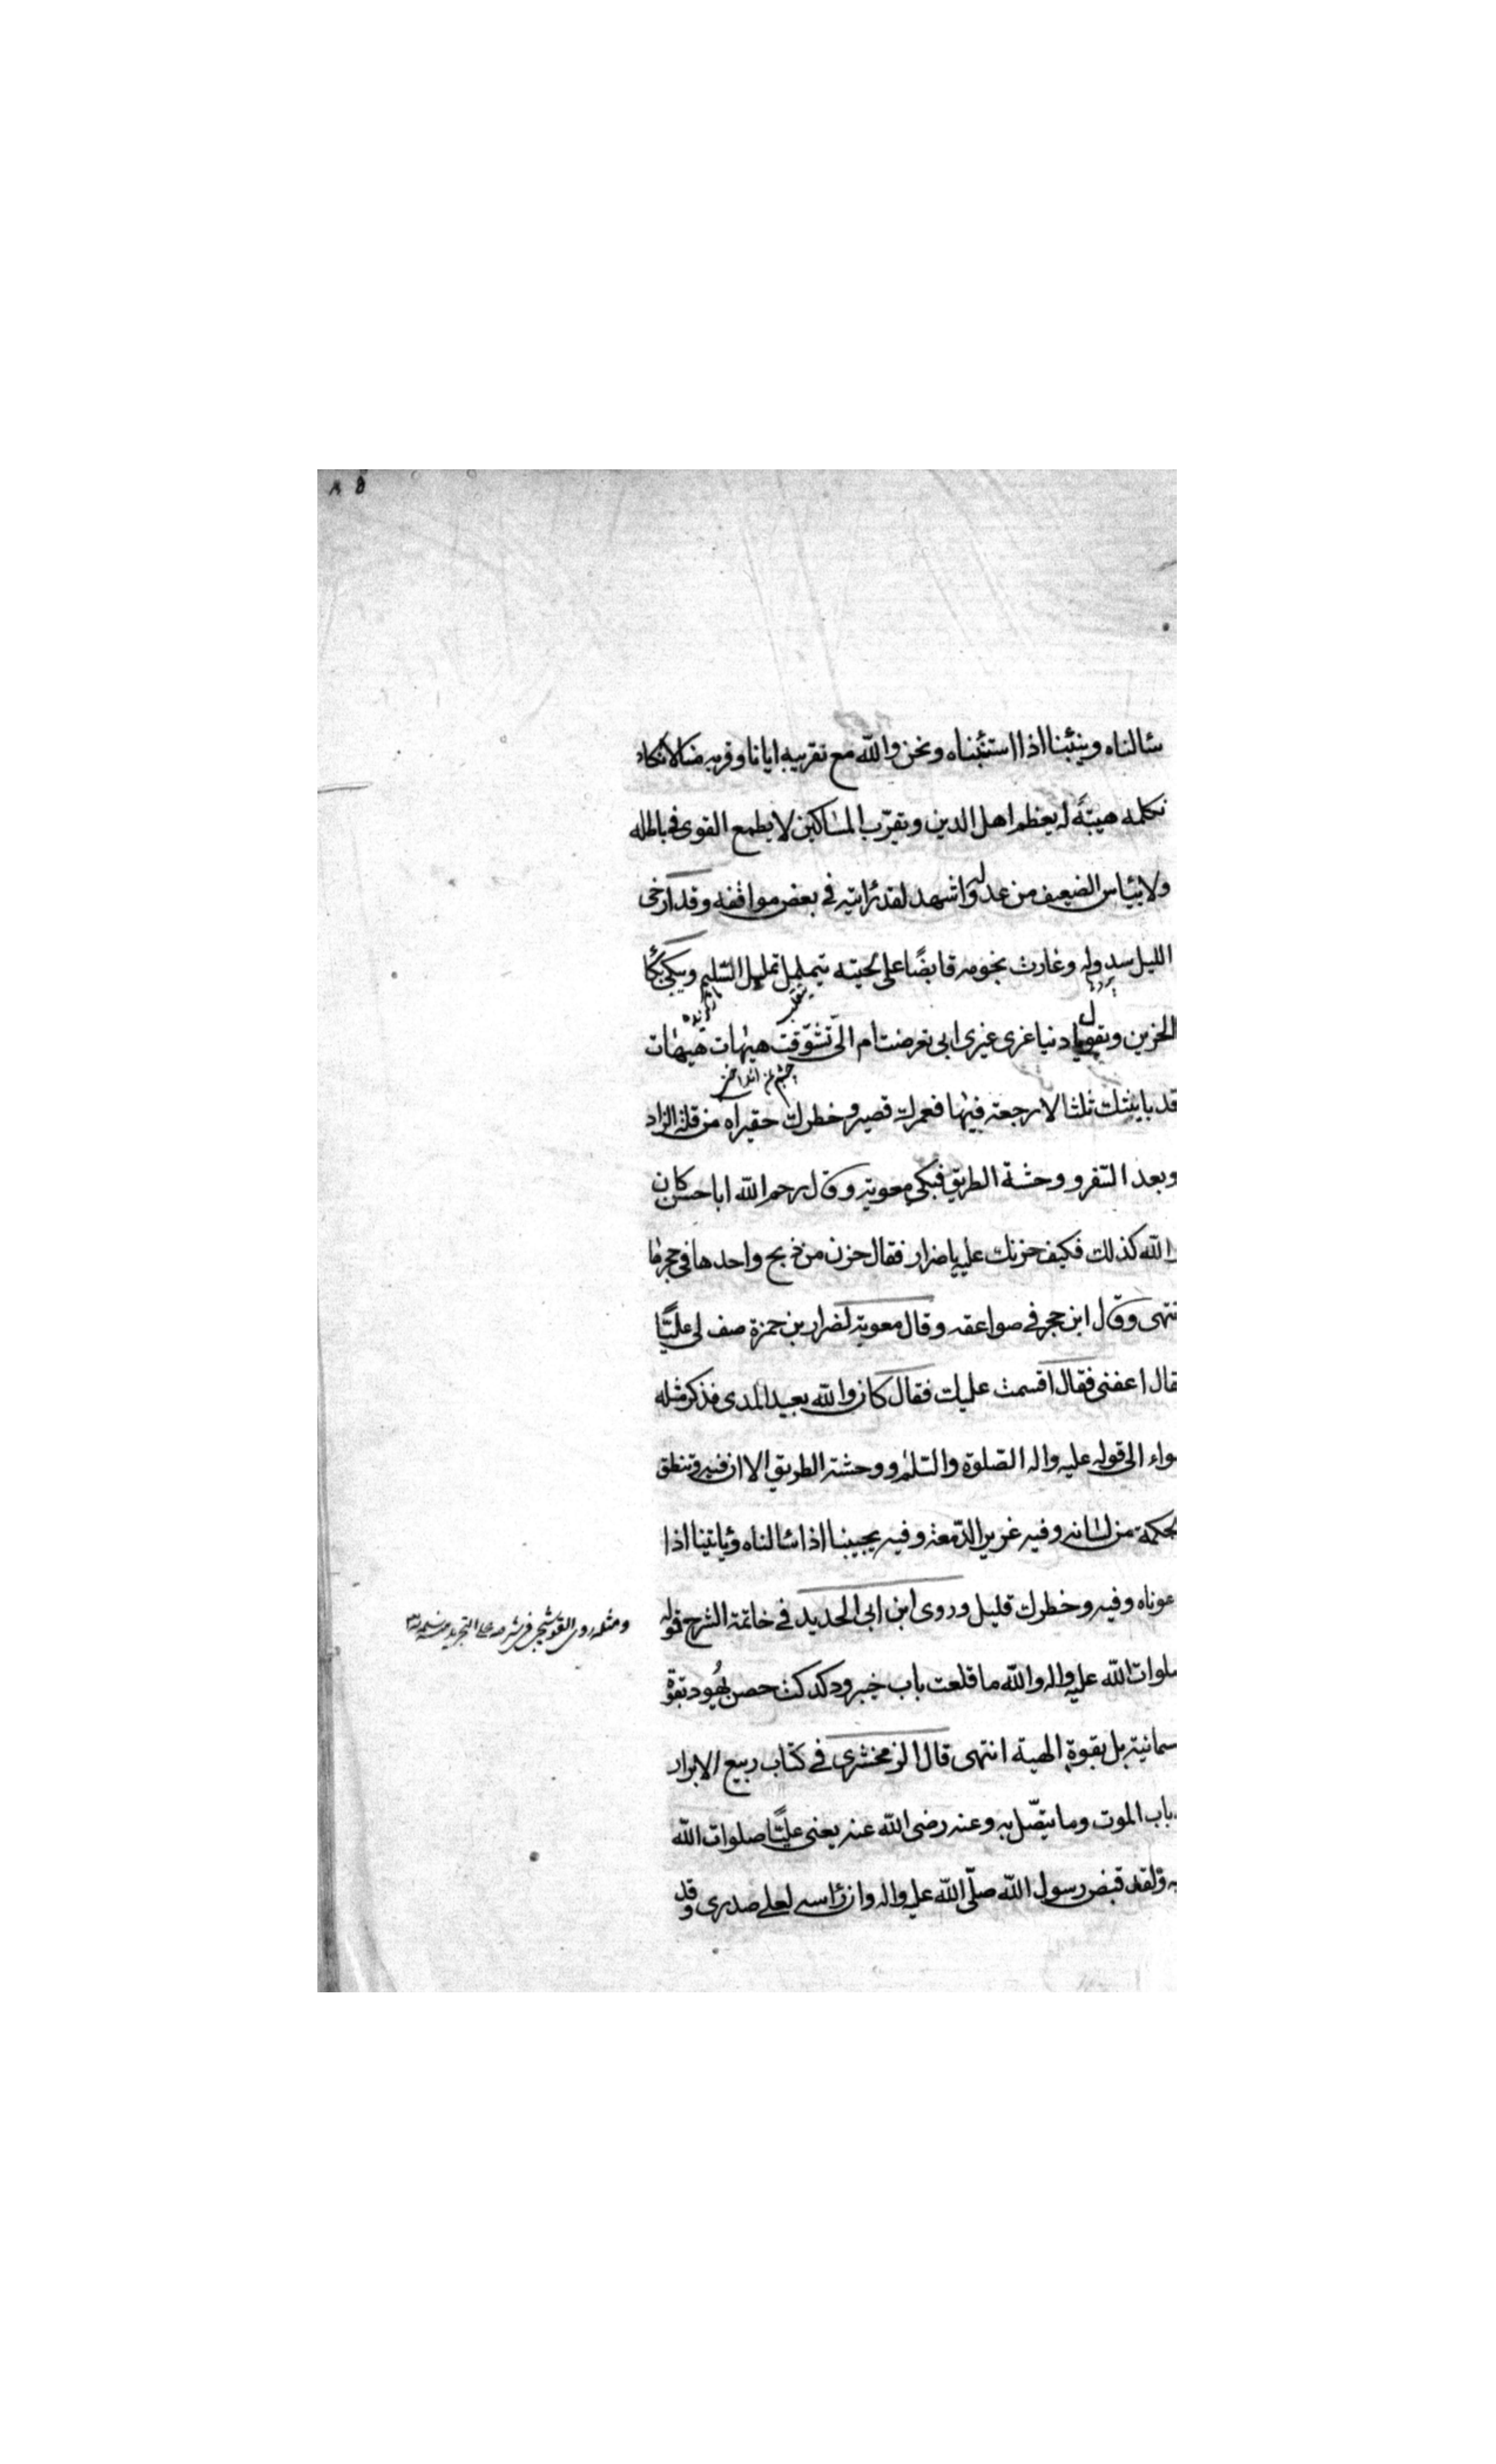 سئالناه وينبئنا اذا استنبئناه ونحن والله مع تقريبه ايانا وقربه منا لا نكاد
نكلمه هيبةً له يعظم اهل الدين ويقرّب المساكين لا يطمع القوى فى باطله
ولا ييئاس الضعيف من عدله واشهد لقد رئايته فى بعض مواقفه وقد ارخى
الليل سدوله وغارت نجومه قابضًا على لحيته يتململ تململ السّليم ويبكى بكًا
الحزين ويقول يا دنيا غرى غيرى ابى تعرضت ام الىّ تشوّقت هيهات هيهات
قد باينتك ثلثا لا رجعة فيها فعمرك قصير وخطرك حقير اه من قلة الزاد
وبعد السّفر و وحشة الطريق فبكى معوية وقال رحم الله ابا حسن كان
والله كذلك فكيف حزنك عليه يا ضرار فقال حزن من ذبح واحدها فى حجرها
نتهى وقال ابن حجر فى صواعقه وقال معوية لضرار بن حمزة صف لى عليًّا
قال اعفنى فقال اقسمت عليك فقال كان والله بعيد المدى فذكر مثله
واء الى قوله عليه واله الصّلوة والسّلم و وحشة الطريق الا ان فيه وتنطق
لحكمة من لسانه وفيه غزير الدّمعة وفيه يجيبنا اذا سئالناه وياتينا اذا
عوناه وفيه وخطرك قليل وروى ابن ابى الحديد فى خاتمة الشرح قوله
ومثله روى القوشجى فى شرحه على التجريد
صلوات الله عليه واله والله ما قلعت باب خيبر ودكدكت حصن يهود بقوّة
سمانية بل بقوة الهية انتهى قال الزمخشرى فى كتاب ربيع الابرار
باب الموت وما يتصّل به وعنه رضى الله عنه يعنى عليًّا صلوات الله
يه ولقد قبض رسول الله صلّى الله عليه واله وان رئاسه لعلى صدرى وقد